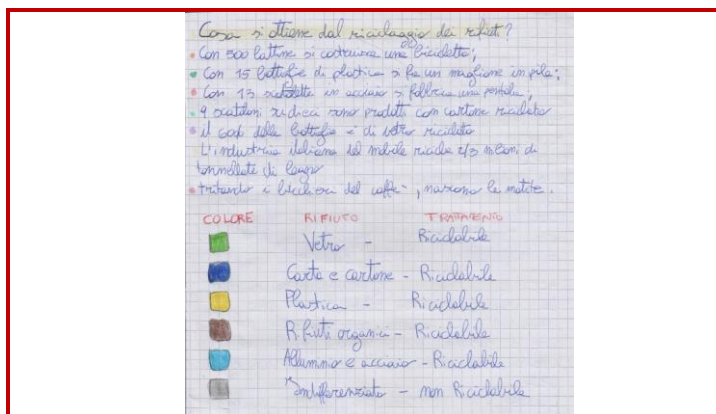 Cosa si ottiene dal riciclaggio dei rifiuti?
Con 500 lattine si costruisce una bicicletta;
Con 15 bottiglie di plastica si fa un maglione in pile;
Con 13 scatolette in acciaio si fabbrica una pentola;
9 scatoloni su dieci sono prodotti con cartone riciclato
il 60% delle bottiglie è di vetro riciclato
L'industria italiana del mobile ricicla 2/3 milioni di
tonnellate di legno
tritando i bicchieri del caffè, nascono le matite.
COLORE RIFIUTO TRATTAMENTO
Vetro - Riciclabile
Carta e cartone - Riciclabile
Plastica - Riciclabile
Rifiuti organici - Riciclabile
Alluminio e acciaio - Riciclabile
Indifferenziato - non Riciclabile